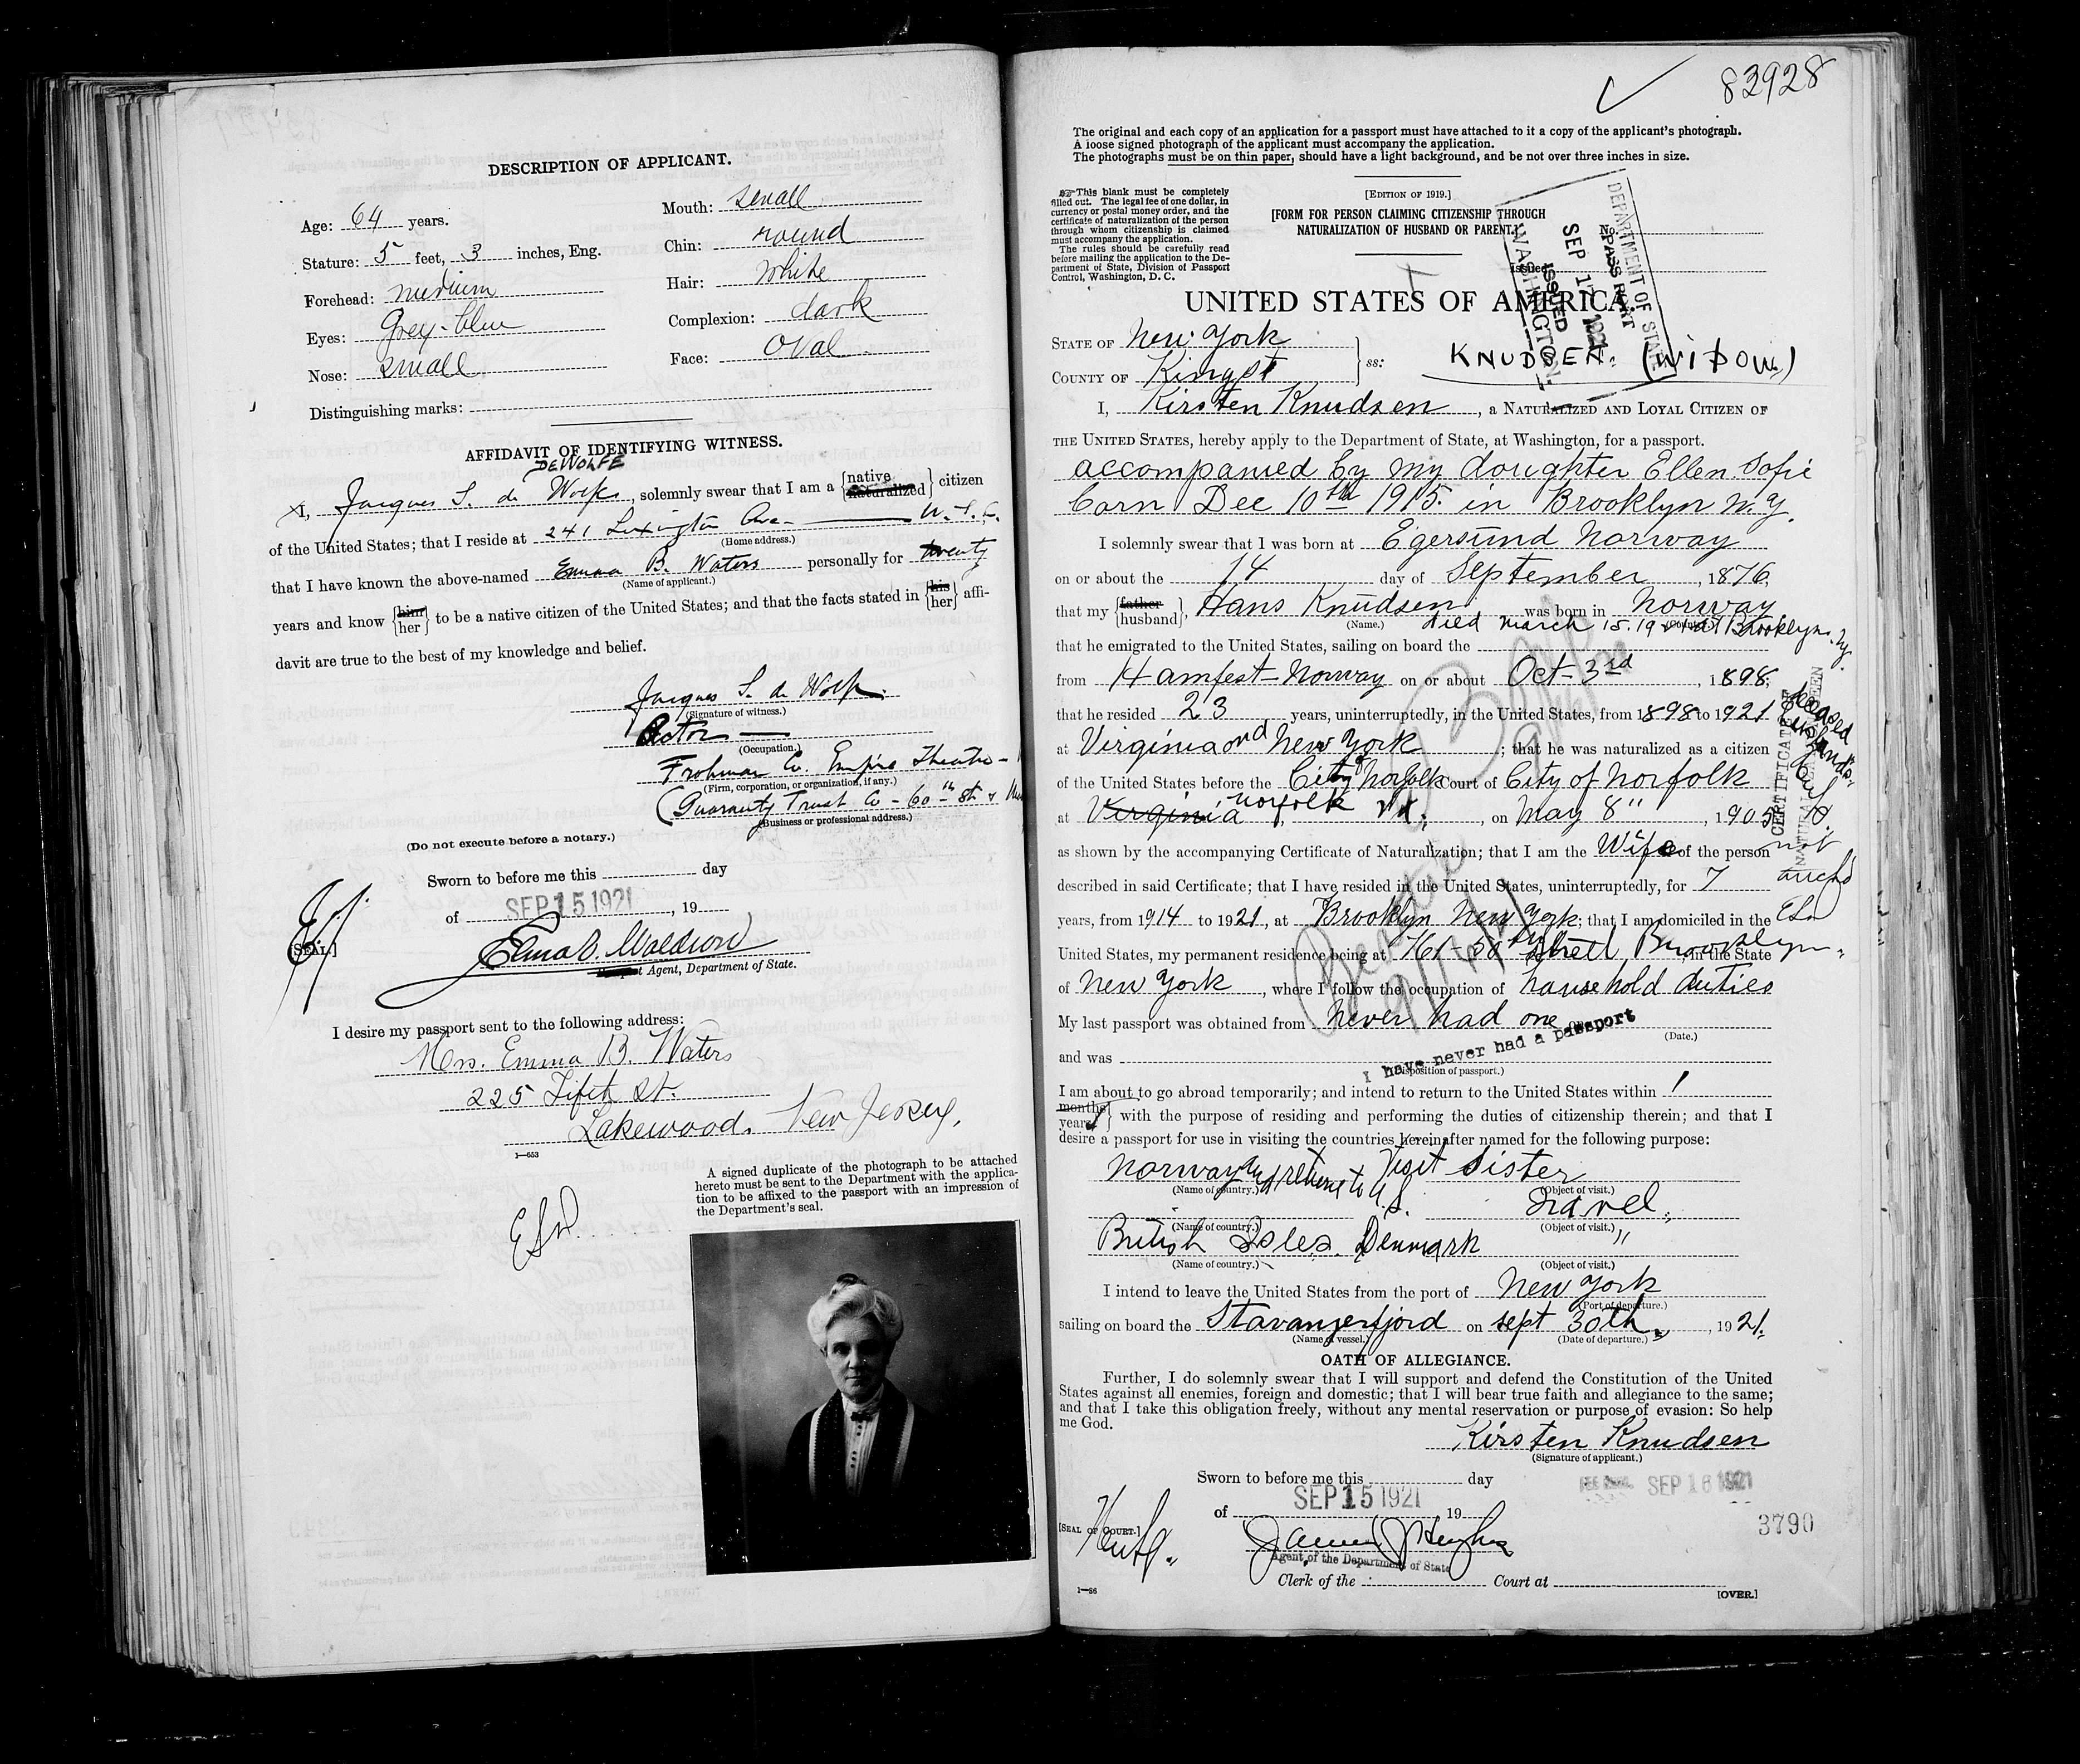 DESCRIPTION OF APPLICANT.
Age: 64 years.
Stature: 5 feet, 3 inches, Eng.
Forehead: medium
Eyes: Grey-blue
Nose: small
Distinguishing marks:
Mouth: small
Chin: round
Hair: White
Complexion: dark
Face: Oval
AFFIDAVIT OF IDENTIFYING WITNESS.
DEWOLFE
I, Jacques S. de Wolfe, solemnly swear that I am a {native naturalized} citizen
of the United States; that I reside at 241 Lexington Ave.
(Home address.)
that I have known the above-named Emma B. Waters personally for twenty
(Name of applicant.)
years and know {him her} to be a native citizen of the United States; and that the facts stated in {his her} affi-
davit are true to the best of my knowledge and belief.
Jacques S. de Wolfe
(Signature of witness.)
Actor
(Occupation.)
Frohman Co. Empire Theatre -
(Firm, corporation, or organization, if any.)
(Guaranty Trust Co - 60th St &
(Business or professional address.)
(Do not execute before a notary.)
Sworn to before me this day
of SEP 15 1921, 19
[SEAL.]
Agent, Department of State.
I desire my passport sent to the following address:
Mrs. Emma B. Waters
225 Fifth St.
Lakewood, New Jersey.
1—653
A signed duplicate of the photograph to be attached
hereto must be sent to the Department with the applica-
tion to be affixed to the passport with an impression of
the Department's seal.
83928
The original and each copy of an application for a passport must have attached to it a copy of the applicant's photograph.
A loose signed photograph of the applicant must accompany the application.
The photographs must be on thin paper, should have a light background, and be not over three inches in size.
This blank must be completely
filled out. The legal fee of one dollar, in
currency or postal money order, and the
certificate of naturalization of the person
through whom citizenship is claimed
must accompany the application.
The rules should be carefully read
before mailing the application to the De-
partment of State, Division of Passport
Control, Washington, D. C.
[EDITION OF 1919.]
[FORM FOR PERSON CLAIMING CITIZENSHIP THROUGH
NATURALIZATION OF HUSBAND OR PARENT.]
No.
Issued
DEPARTMENT OF STATE
PASSPORT
SEP 17 1921
ISSUED
WASHINGTON
UNITED STATES OF AMERICA.
STATE OF New York
COUNTY OF Kings
ss:
KNUDSEN. (WIDOW)
I, Kirsten Knudsen, a NATURALIZED AND LOYAL CITIZEN OF
THE UNITED STATES, hereby apply to the Department of State, at Washington, for a passport.
accompanied by my doughter Ellen Sofie
born Dec 10th 1915. in Brooklyn N.Y.
I solemnly swear that I was born at Egersund Norway
on or about the 14 day of September, 1876,
that my {father husband}, Hans Knudsen was born in Norway
(Name.) (Country.)
died March 15. 19 at Brooklyn. N.Y.
that he emigrated to the United States, sailing on board the
from Hamfest-Norway on or about Oct-3rd, 1898;
that he resided 23 years, uninterruptedly, in the United States, from 1898 to 1921
at Virginia and New York; that he was naturalized as a citizen
of the United States before the City of Norfolk Court of City of Norfolk
at Virginia Norfolk Va., on May 8", 1905
as shown by the accompanying Certificate of Naturalization; that I am the Wife of the person
described in said Certificate; that I have resided in the United States, uninterruptedly, for 7
years, from 1914 to 1921, at Brooklyn New York; that I am domiciled in the
United States, my permanent residence being at 761-50th Street Brooklyn, in the State
of New York, where I follow the occupation of household duties
My last passport was obtained from never had one on
(Date.)
I have never had a passport
and was
(Disposition of passport.)
I am about to go abroad temporarily; and intend to return to the United States within 1
{months years} with the purpose of residing and performing the duties of citizenship therein; and that I
desire a passport for use in visiting the countries hereinafter named for the following purpose:
Norway and return to U.S. Visit Sister
(Name of country.) (Object of visit.)
Travel
(Name of country.) (Object of visit.)
British Isles. Denmark "
(Name of country.) (Object of visit.)
I intend to leave the United States from the port of New York
(Port of departure.)
sailing on board the Stavangerfjord on sept 30th, 1921.
(Name of vessel.) (Date of departure.)
OATH OF ALLEGIANCE.
Further, I do solemnly swear that I will support and defend the Constitution of the United
States against all enemies, foreign and domestic; that I will bear true faith and allegiance to the same;
and that I take this obligation freely, without any mental reservation or purpose of evasion: So help
me God.
Kirsten Knudsen
(Signature of applicant.)
Sworn to before me this day
of SEP 15 1921 19
SEP 16 1921
[SEAL OF COURT.]
Agent of the Department of State
3790
Clerk of the Court at
1—86
[OVER.]